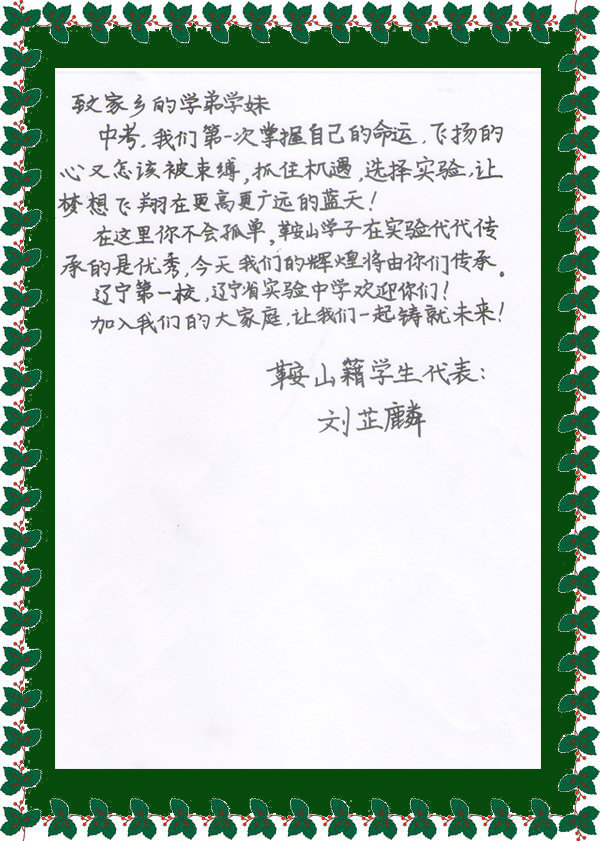 致家乡的学弟学妹
中考,我们第一次掌握自己的命运,飞扬的
心又怎该被束缚,抓住机遇,选择实验,让
梦想飞翔在更高更广远的蓝天!
在这里你不会孤单,鞍山学子在实验代代传
承的是优秀,今天我们的辉煌将由你们传承。
辽宁第一校,辽宁省实验中学欢迎你们!
加入我们的大家庭,让我们一起铸就未来!
鞍山籍学生代表:
刘芷麟